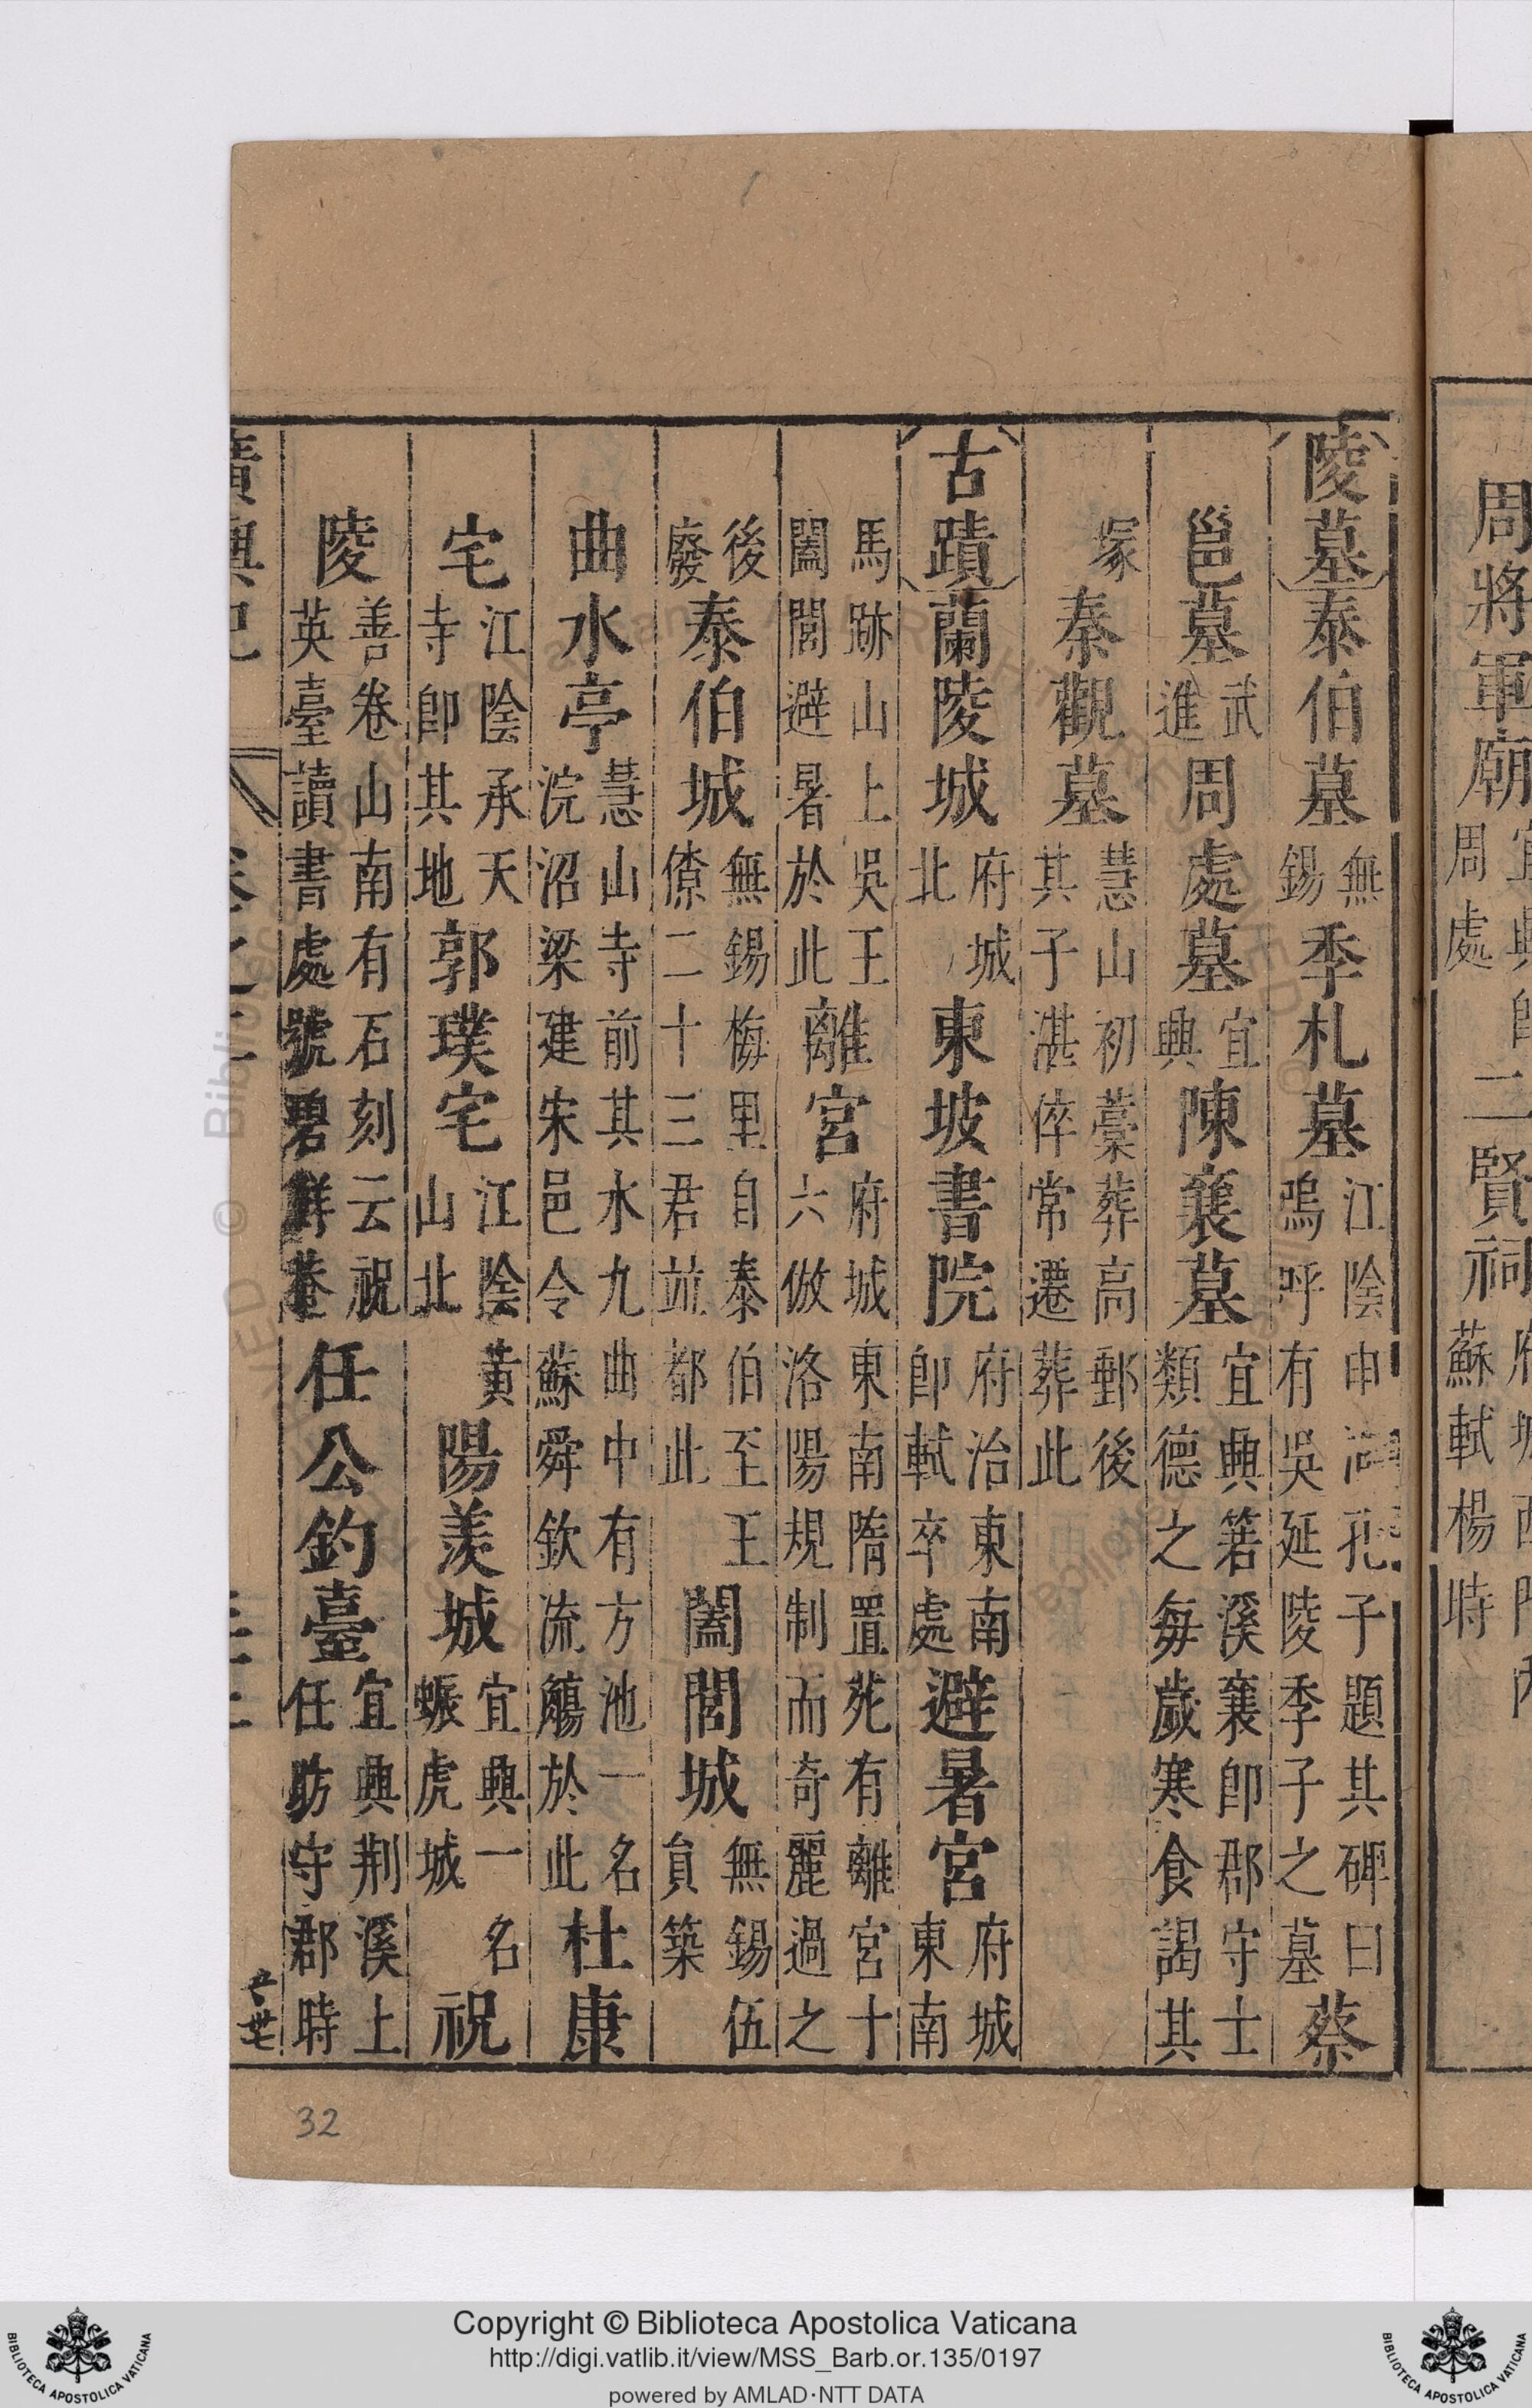 周將軍廟周處二賢祠蘇軾楊時
陵墓泰伯墓無錫季札墓江陰申浦孔子題其碑曰嗚呼有吳延陵季子之墓蔡
邕墓武進周處墓宜興陳襄墓宜興箬溪襄卽郡守士類德之每歲寒食謁其
塚秦觀墓慧山初藁葬高郵後其子湛倅常遷葬此
古蹟蘭陵城府城北東坡書院府治東南卽軾卒處避暑宮府城東南
馬跡山上吳王闔閭避暑於此離宮府城東南隋置苑有離宮十六倣洛陽規制而奇麗過之
後廢泰伯城無錫梅里自泰伯至王僚二十三君竝都此闔閭城無錫伍員築
曲水亭慧山寺前其水九曲中有方池一名浣沼梁建宋邑令蘇舜欽流觴於此杜康
宅江陰承天寺卽其地郭璞宅江陰黃山北陽羨城宜興一名蜄虎城祝
陵善卷山南有石刻云祝英臺讀書處號碧鮮菴任公釣臺宜興荆溪上任昉守郡時
廣輿記
32
Copyright © Biblioteca Apostolica Vaticana
http://digi.vatlib.it/view/MSS_Barb.or.135/0197
powered by AMLAD·NTT DATA
BIBLIOTECA APOSTOLICA VATICANA
BIBLIOTECA APOSTOLICA VATICANA